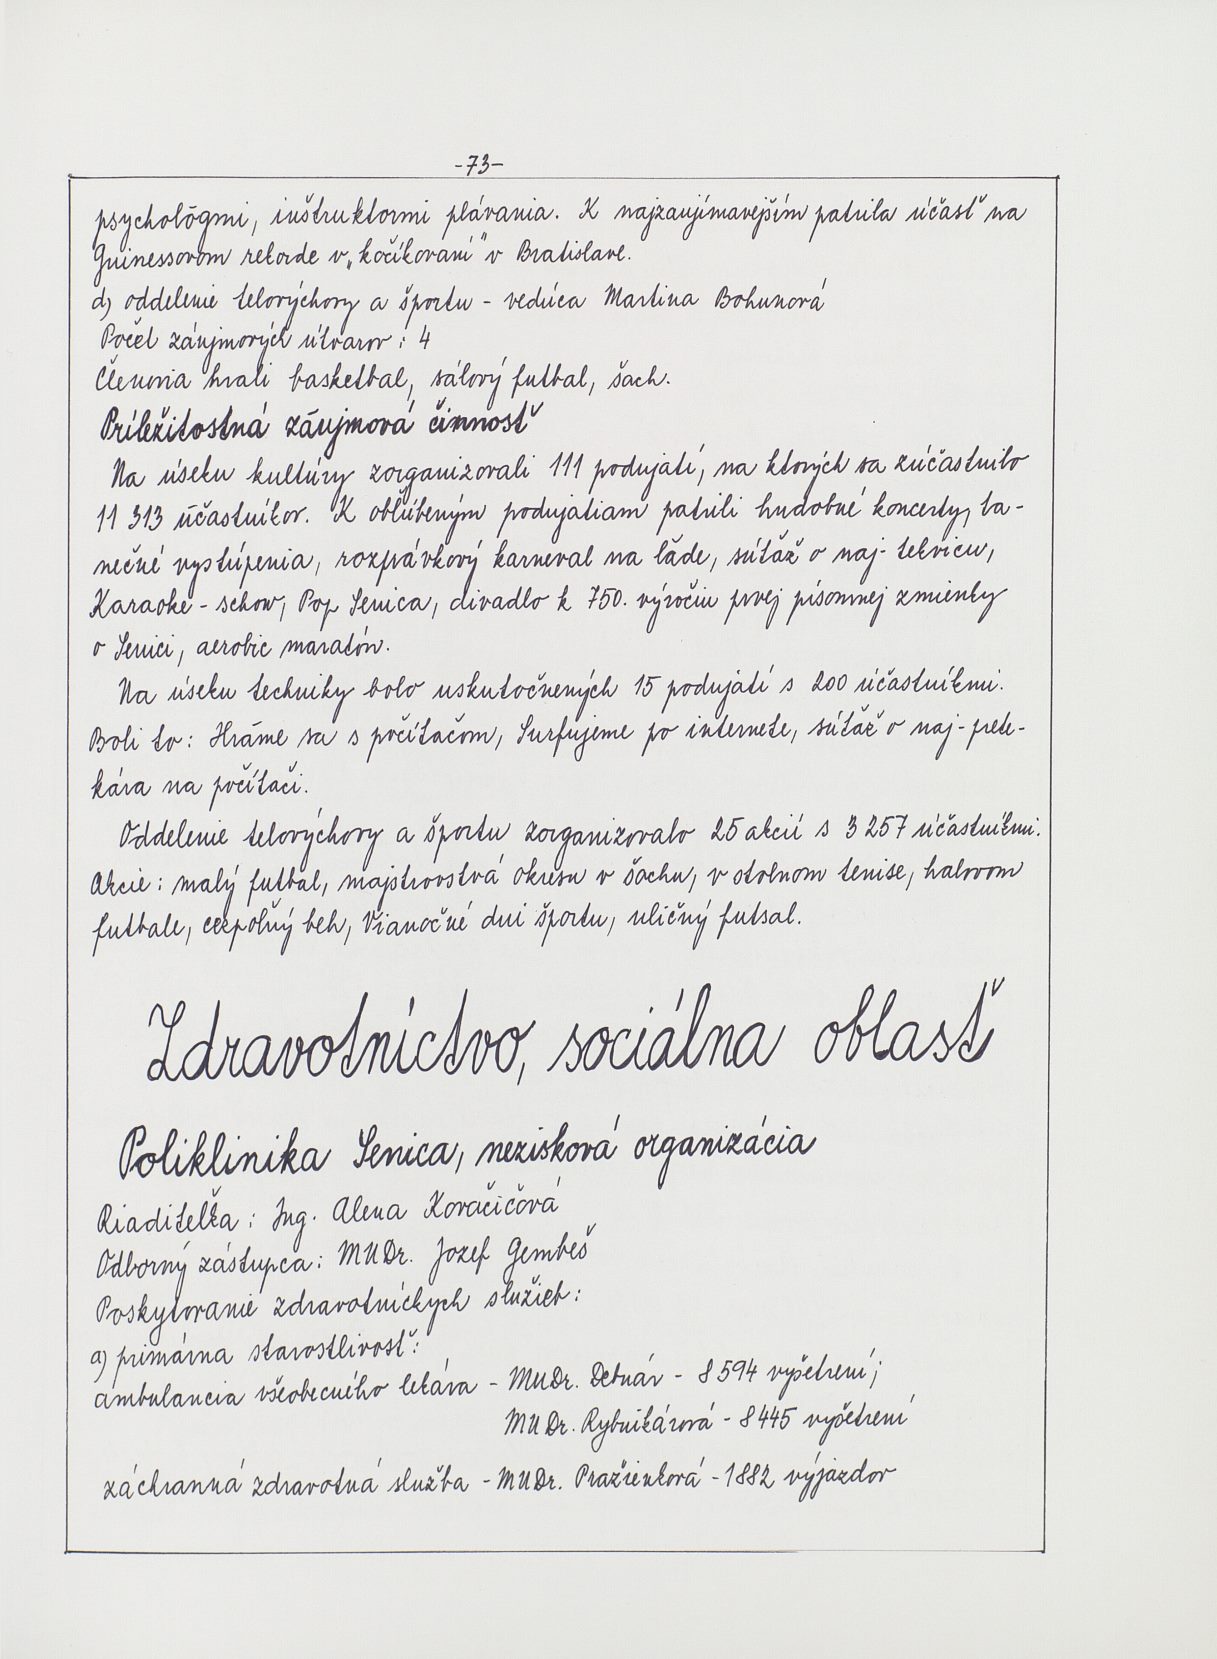 -73-
psychológmi, inštruktormi plávania. K najzaujímavejším patrila účasť na
Guinessovom rekorde v „kočíkovaní" v Bratislave.
d) oddelenie telovýchovy a športu - vedúca Martina Bohunová
Počet záujmových útvarov : 4
Členovia hrali basketbal, sálový futbal, šach.
Príležitostná záujmová činnosť
Na úseku kultúry zorganizovali 111 podujatí, na ktorých sa zúčastnilo
11 313 účastníkov. K obľúbeným podujatiam patrili hudobné koncerty, ta-
nečné vystúpenia, rozprávkový karneval na ľade, súťaž o naj- tekvicu,
Karaoke - schow, Pop Senica, divadlo k 750. výročiu prvej písomnej zmienky
o Senici, aerobic maratón.
Na úseku techniky bolo uskutočnených 15 podujatí s 200 účastníkmi.
Boli to: Hráme sa s počítačom, Surfujeme po internete, súťaž o naj- prete-
kára na počítači.
Oddelenie telovýchovy a športu zorganizovalo 25 akcií s 3 257 účastníkmi.
Akcie : malý futbal, majstrovstvá okresu v šachu, v stolnom tenise, halovom
futbale, cezpoľný beh, Vianočné dni športu, uličný futsal.
Zdravotníctvo, sociálna oblasť
Poliklinika Senica, nezisková organizácia
Riaditeľka : Ing. Alena Kovačičová
Odborný zástupca : MUDr. Jozef Gembeš
Poskytovanie zdravotníckych služieb :
a) primárna starostlivosť :
ambulancia všeobecného lekára - MUDr. Debnár - 8 594 vyšetrení;
MUDr. Rybnikárová - 8 445 vyšetrení
záchranná zdravotná služba - MUDr. Pražienková - 1 882 výjazdov